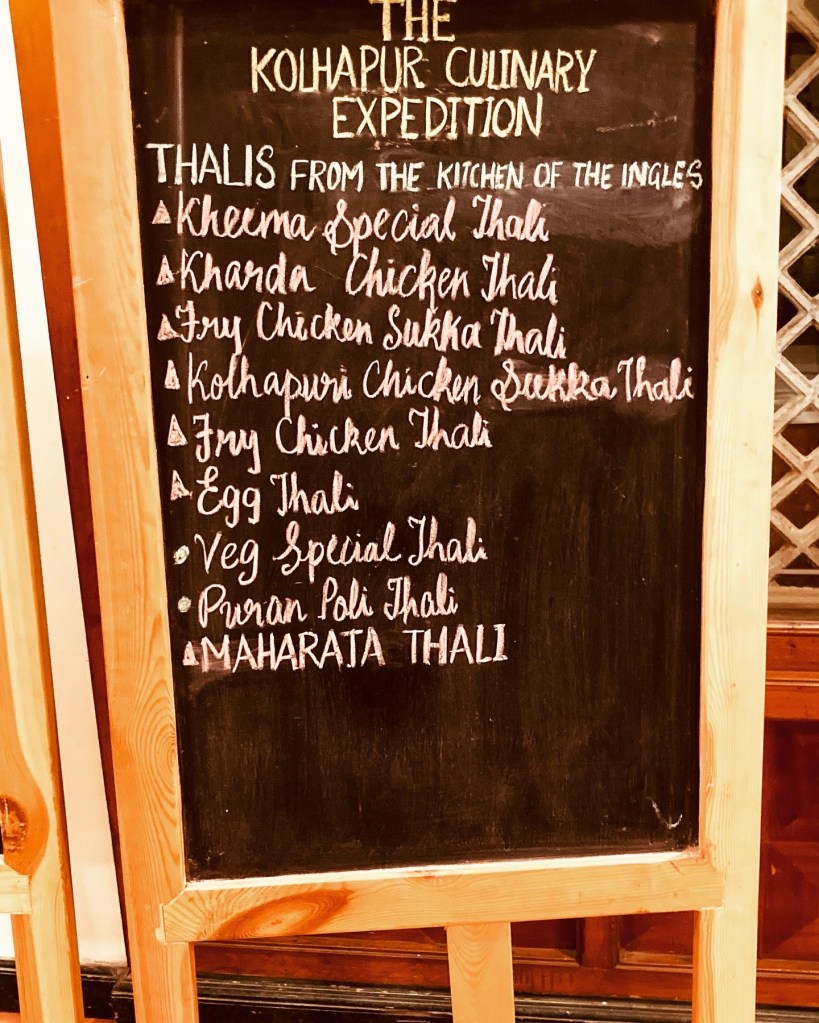 THE
KOLHAPUR CULINARY
EXPEDITION
THALIS FROM THE KITCHEN OF THE INGLES
Kheema Special Thali
Kharda Chicken Thali
Fry Chicken Sukka Thali
Kolhapuri Chicken Sukka Thali
Fry Chicken Thali
Egg Thali
Veg Special Thali
Puran Poli Thali
MAHARAJA THALI